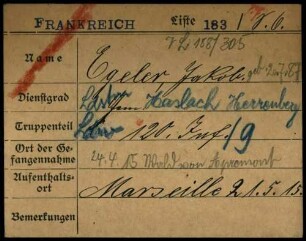 FRANKREICH Liste 183 / S. 6.
158/305
Name Egeler Jakob
Dienstgrad Haslach Herrenberg
Truppenteil Ldw 120. Inf. / 9
Ort der Gefangennahme 24. 4. 15 Wald von Apremont
Aufenthaltsort Marseille 21. 5. 15.
Bemerkungen